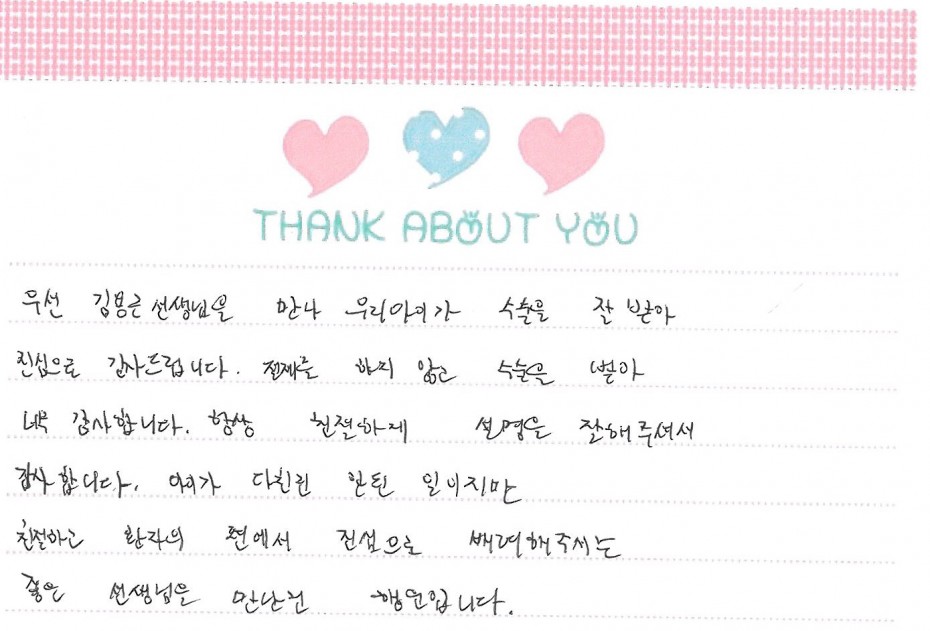 THANK ABOUT YOU
우선 김용근 선생님을 만나 우리아이가 수술을 잘 받아
진심으로 감사드립니다. 절제를 하지 않고 수술을 받아
너무 감사합니다. 항상 친절하게 설명을 잘해주셔서
감사합니다. 아이가 다친건 안된 일이지만
친절하고 환자의 편에서 진심으로 배려해주시는
좋은 선생님을 만난건 행운입니다.